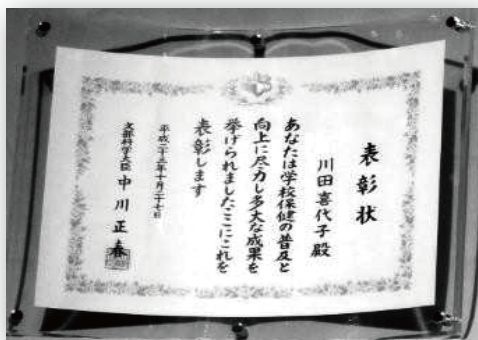 表彰状
川田喜代子殿
あなたは学校保健の普及と
向上に尽力し多大な成果を
挙げられましたここにこれを
表彰します
平成二十三年十月二十七日
文部科学大臣 中川正春